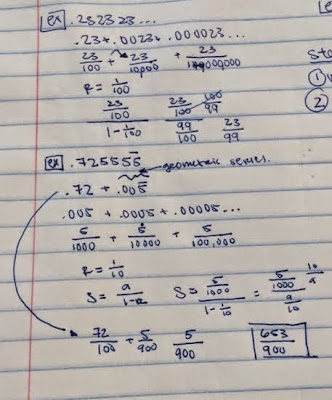 ex .232323...
.23 + .0023 + .000023...
23/100 + 23/10,000 + 23/1,000,000
R = 1/100
23/100 / 1 - 1/100   23/100 100/99 / 99/100   23/99
ex .725555̅
geometric series.
.72 + .005̅
.005 + .0005 + .00005...
5/1000 + 5/10000 + 5/100,000
R = 1/10
S = a/1-R   S = 5/1000 / 1 - 1/10 = 5/1000 10/9 / 9/10
72/100 + 5/900   5/900   653/900
1
2